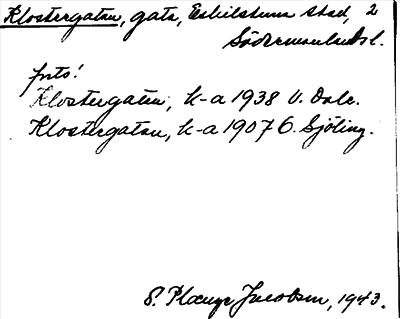 Klostergatan, gata, Eskilstuna stad, 2
Södermanlands l.
foto!
Klostergatan, k-a 1938 U. Dale.
Klostergatan, k-a 1907 G. Sjöling.
S. Plænge Jacobson, 1943.